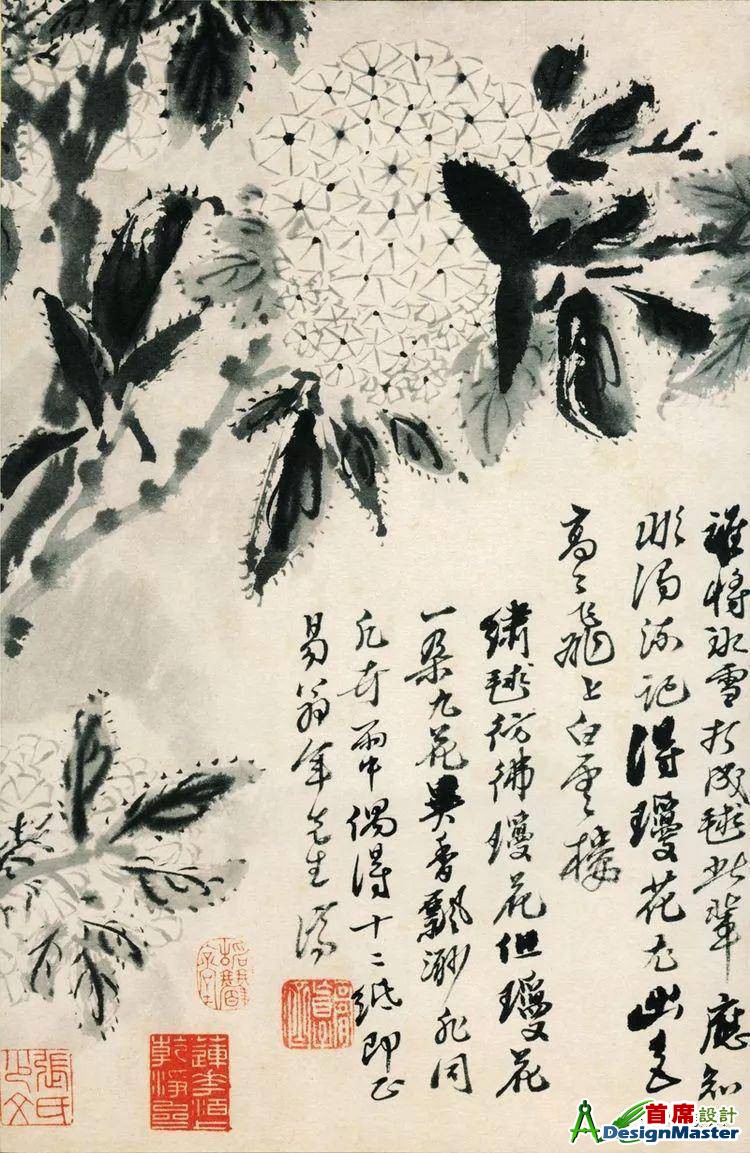 誰將冰雪打成毬此輩應知
流記得瓊花尤出色
高〻飛上白雲樓
繡毬彷彿瓊花但瓊花
一朵九花異香飄渺非同
凡卉雨中偶得十二紙即正
易翁年先生 濟
首席設計
DesignMaster